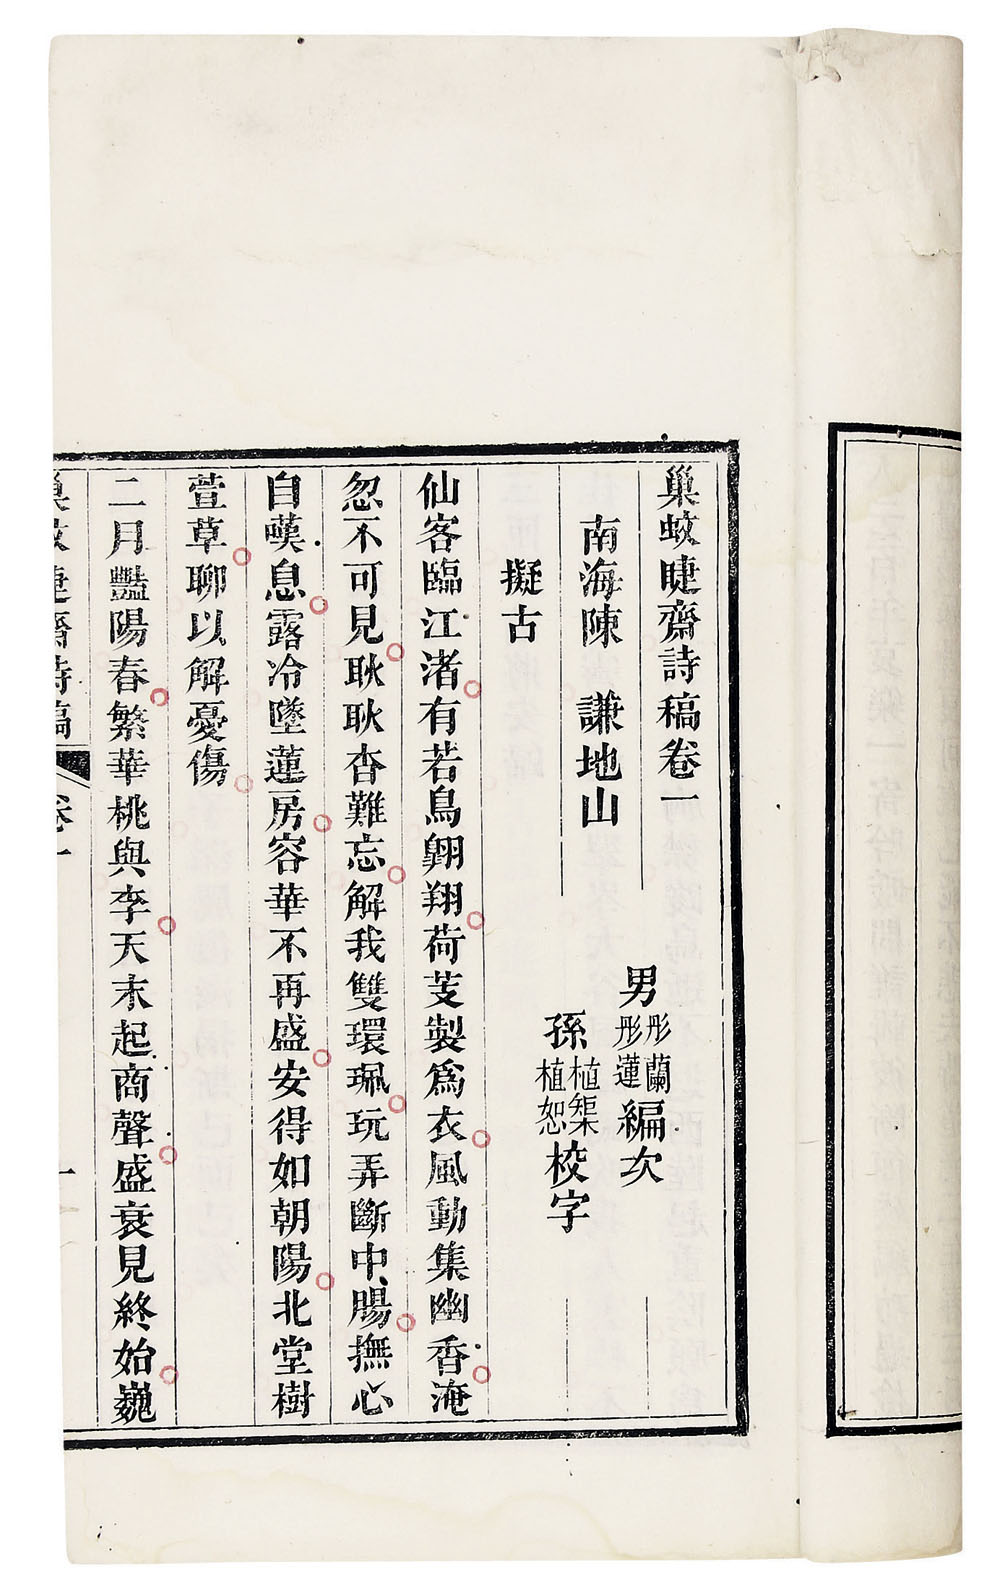 巢蚊睫齋詩稿卷一
南海陳 謙地山
男彤蘭彤蓮編次
孫植榘植恕校字
擬古
仙客臨江渚有若鳥翺翔荷芰製爲衣風動集幽香淹
忽不可見耿耿杳難忘解我雙環珮玩弄斷中腸撫心
自嘆息露冷墜蓮房容華不再盛安得如朝陽北堂樹
萱草聊以解憂傷
二月豔陽春繁華桃與李天末起商聲盛衰見終始巍
巢蚊睫齋詩稿 卷一 一